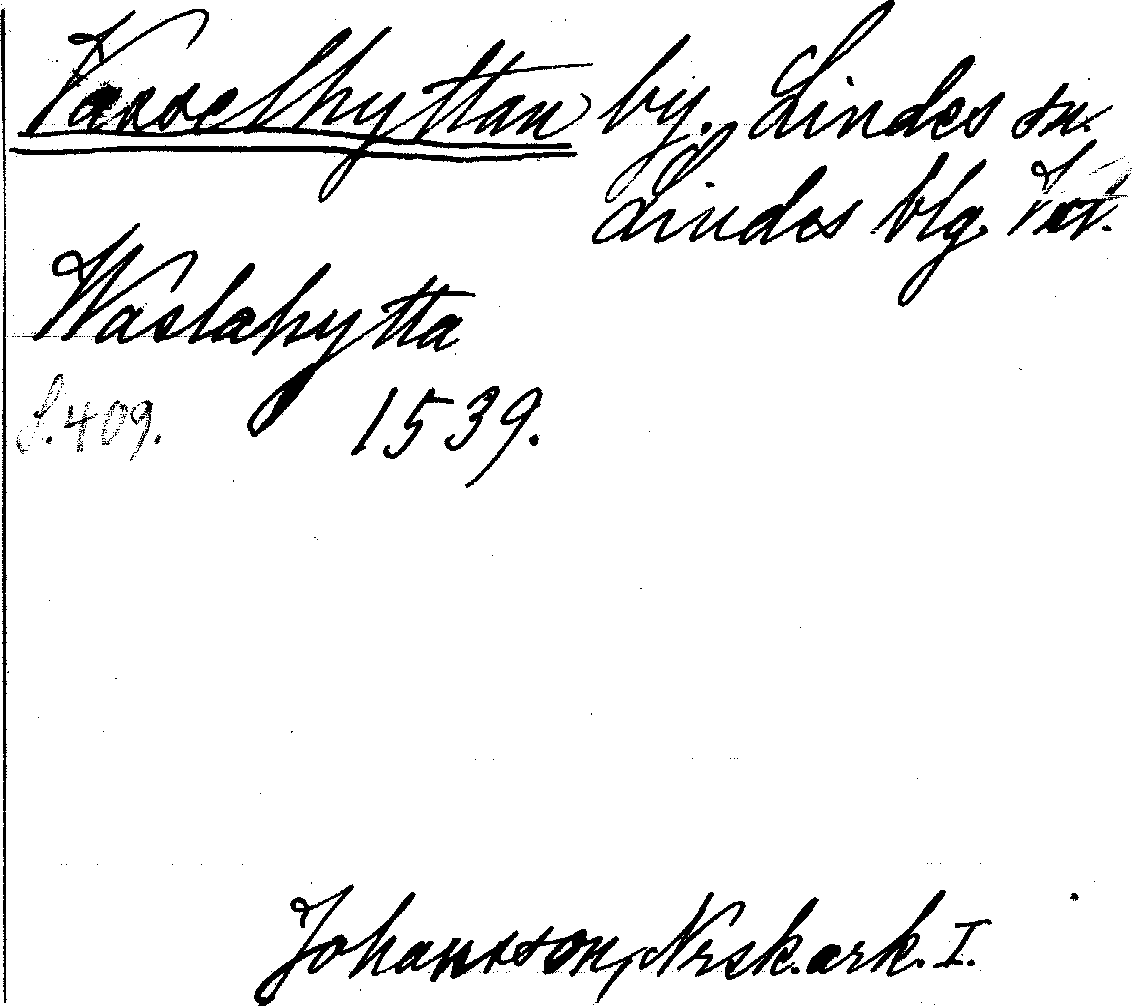 Vasselhyttan by. Lindes sn.
Lindes blg. Vst.
Waslahytta
S. 409. 1539.
Johansson, Nrsk. ark. I.